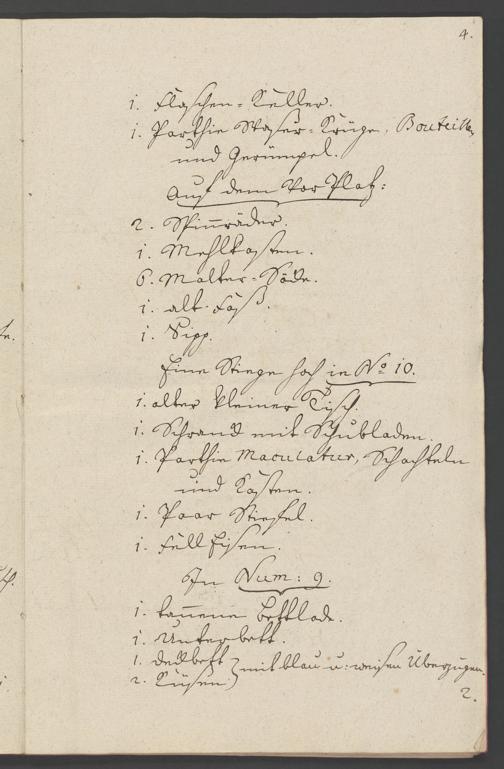 4.
1. Flaschen-Keller.
1. Parthie Waßer-Krüge, Bouteillen
und Gerümpel.
Auf dem Vor Platz:
2. Spinnräder.
1. Mehlkasten.
6. Malter-Säcke.
1. alt Faß.
1. Sipp.
Eine Stiege hoch in No 10.
1. alter kleiner Tisch.
1. Schranck mit Schubladen.
1. Parthie Maculatur, Schachteln
und Kasten.
1. Paar Stiefel.
1. Fell Eisen.
In Num: 9.
1. tannene Bettlade.
1. Unterbett.
1. Deckbett
2. Küßen } mit blau u: weisen Überzügen.
2.